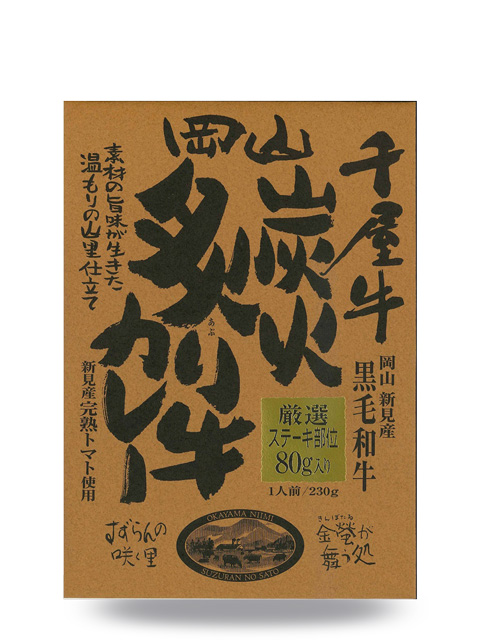 岡山
千屋牛
炭火
炙り牛
あぶ
カレー
素材の旨味が生きた
温もりの山里仕立て
岡山 新見産
黒毛和牛
新見産完熟トマト使用
厳選
ステーキ部位
80g入り
1人前/230g
すずらんの
咲く里
OKAYAMA NIIMI
SUZURAN NO SATO
きんぼたる
金螢が
舞う処